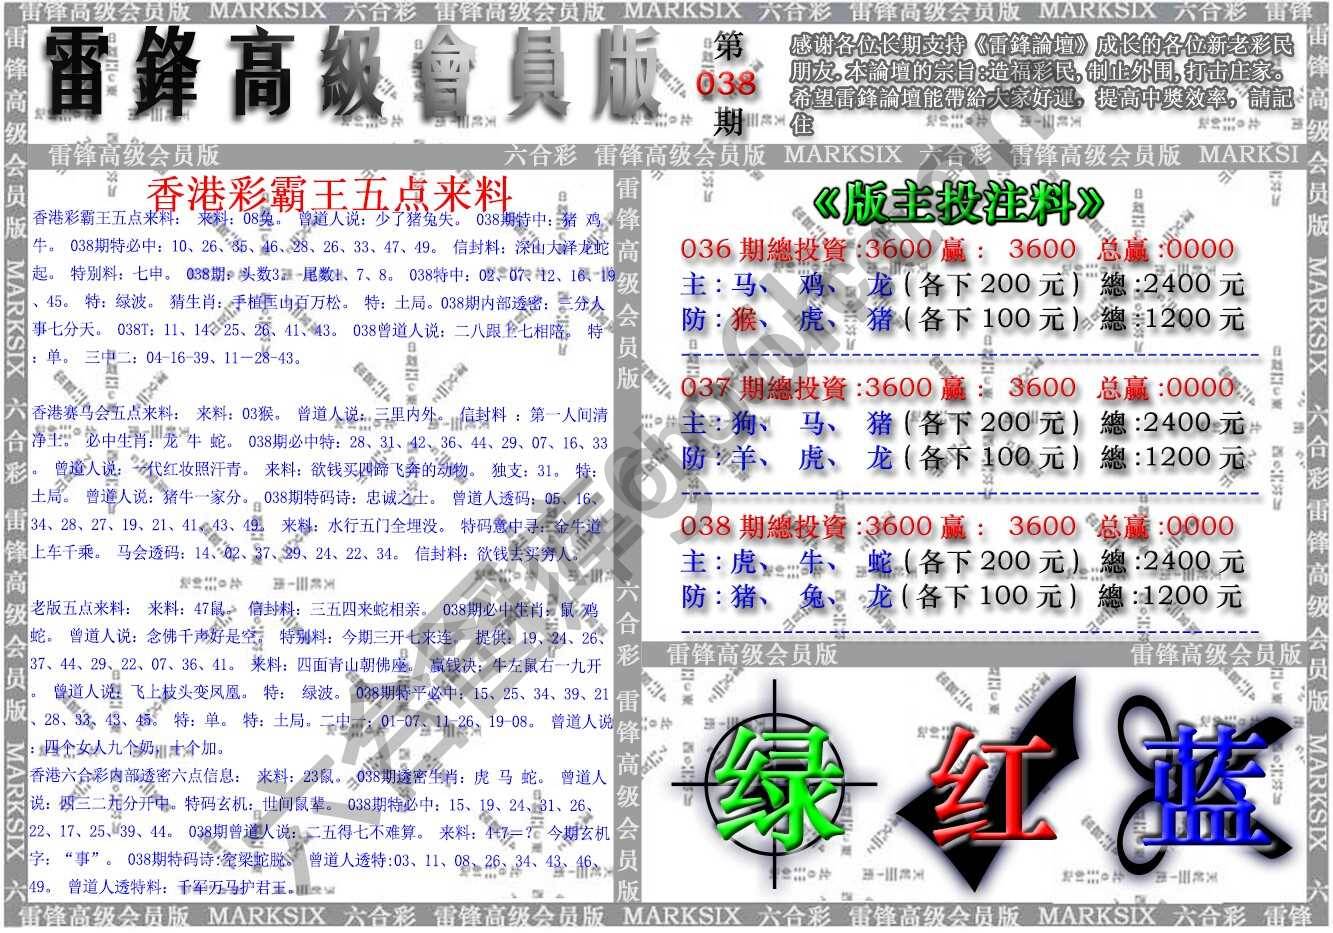 雷锋高级会员版 MARKSIX 六合彩 雷锋高级会员版 MARKSIX 六合彩 雷锋高级会员版 MARKSIX 六合彩 雷锋
雷鋒高級會員版
第
038
期
感谢各位长期支持《雷鋒論壇》成长的各位新老彩民
朋友.本論壇的宗旨:造福彩民,制止外围,打击庄家。
希望雷鋒論壇能帶給大家好運，提高中獎效率，請記
住
雷锋高级会员版 六合彩 雷锋高级会员版 MARKSIX 六合彩 雷锋高级会员版 MARKSI
香港彩霸王五点来料
香港彩霸王五点来料： 来料：08兔。 曾道人说：少了猪兔失。 038期特中：猪 鸡
牛。 038期特必中：10、26、35、46、28、26、33、47、49。 信封料：深山大泽龙蛇
起。 特别料：七申。 038期：头数3。 尾数1、7、8。 038特中：02、07、12、16、19
、45。 特：绿波。 猜生肖：手植匡山百万松。 特：土局。038期内部透密：三分人
事七分天。 038T：11、14、25、26、41、43。 038曾道人说：二八跟上七相陪。 特
：单。 三中二：04-16-39、11－28-43。
香港赛马会五点来料： 来料：03猴。 曾道人说：三里内外。 信封料 ：第一人间清
净土。 必中生肖：龙 牛 蛇。 038期必中特：28、31、42、36、44、29、07、16、33
。 曾道人说：一代红妆照汗青。 来料：欲钱买四蹄飞奔的动物。 独支：31。 特：
土局。 曾道人说：猪牛一家分。 038期特码诗：忠诚之士。 曾道人透码：05、16、
34、28、27、19、21、41、43、49。 来料：水行五门全埋没。 特码意中寻：金牛道
上车千乘。 马会透码：14、02、37、29、24、22、34。 信封料：欲钱去买穷人。
老版五点来料： 来料：47鼠。 信封料：三五四来蛇相亲。 038期必中生肖：鼠 鸡
蛇。 曾道人说：念佛千声好是空。 特别料：今期三开七来连。 提供：19、24、26、
37、44、29、22、07、36、41。 来料：四面青山朝佛座。 赢钱决：牛左鼠右一九开
。 曾道人说：飞上枝头变凤凰。 特： 绿波。 038期特平必中：15、25、34、39、21
、28、33、43、45。 特：单。 特：土局。二中一：01-07、11-26、19-08。 曾道人说
：四个女人九个奶，十个加。
香港六合彩内部透密六点信息： 来料：23鼠。 038期透密生肖：虎 马 蛇。 曾道人
说：四三二九分开中。特码玄机：世间鼠辈。 038期特必中：15、19、24、31、26、
22、17、25、39、44。 038期曾道人说：二五得七不难算。 来料：4+7＝？ 今期玄机
字：“事”。 038期特码诗:空梁蛇脱。 曾道人透特:03、11、08、26、34、43、46、
49。 曾道人透特料：千军万马护君王。
《版主投注料》
036 期總投資 :3600 赢 : 3600 总赢 :0000
主 : 马、 鸡、 龙 ( 各下 200 元 ) 總 :2400 元
防 : 猴、 虎、 猪 ( 各下 100 元 ) 總 :1200 元
037 期總投資 :3600 赢 : 3600 总赢 :0000
主 : 狗、 马、 猪 ( 各下 200 元 ) 總 :2400 元
防 : 羊、 虎、 龙 ( 各下 100 元 ) 總 :1200 元
038 期總投資 :3600 赢 : 3600 总赢 :0000
主 : 虎、 牛、 蛇 ( 各下 200 元 ) 總 :2400 元
防 : 猪、 兔、 龙 ( 各下 100 元 ) 總 :1200 元
雷锋高级会员版 雷锋高级会员版
绿 红 蓝
雷锋高级会员版 MARKSIX 六合彩 雷锋高级会员版 MARKSIX 六
雷锋高级会员版 六合彩 雷锋高级会员版
雷锋高级会员版 MARKSIX 六合彩 雷锋高级会员版 MARKSIX 六
雷锋高级会员版 MARKSIX 六合彩 雷锋高级会员版 MARKSIX 六合彩 雷锋高级会员版 MARKSIX 六合彩 雷锋